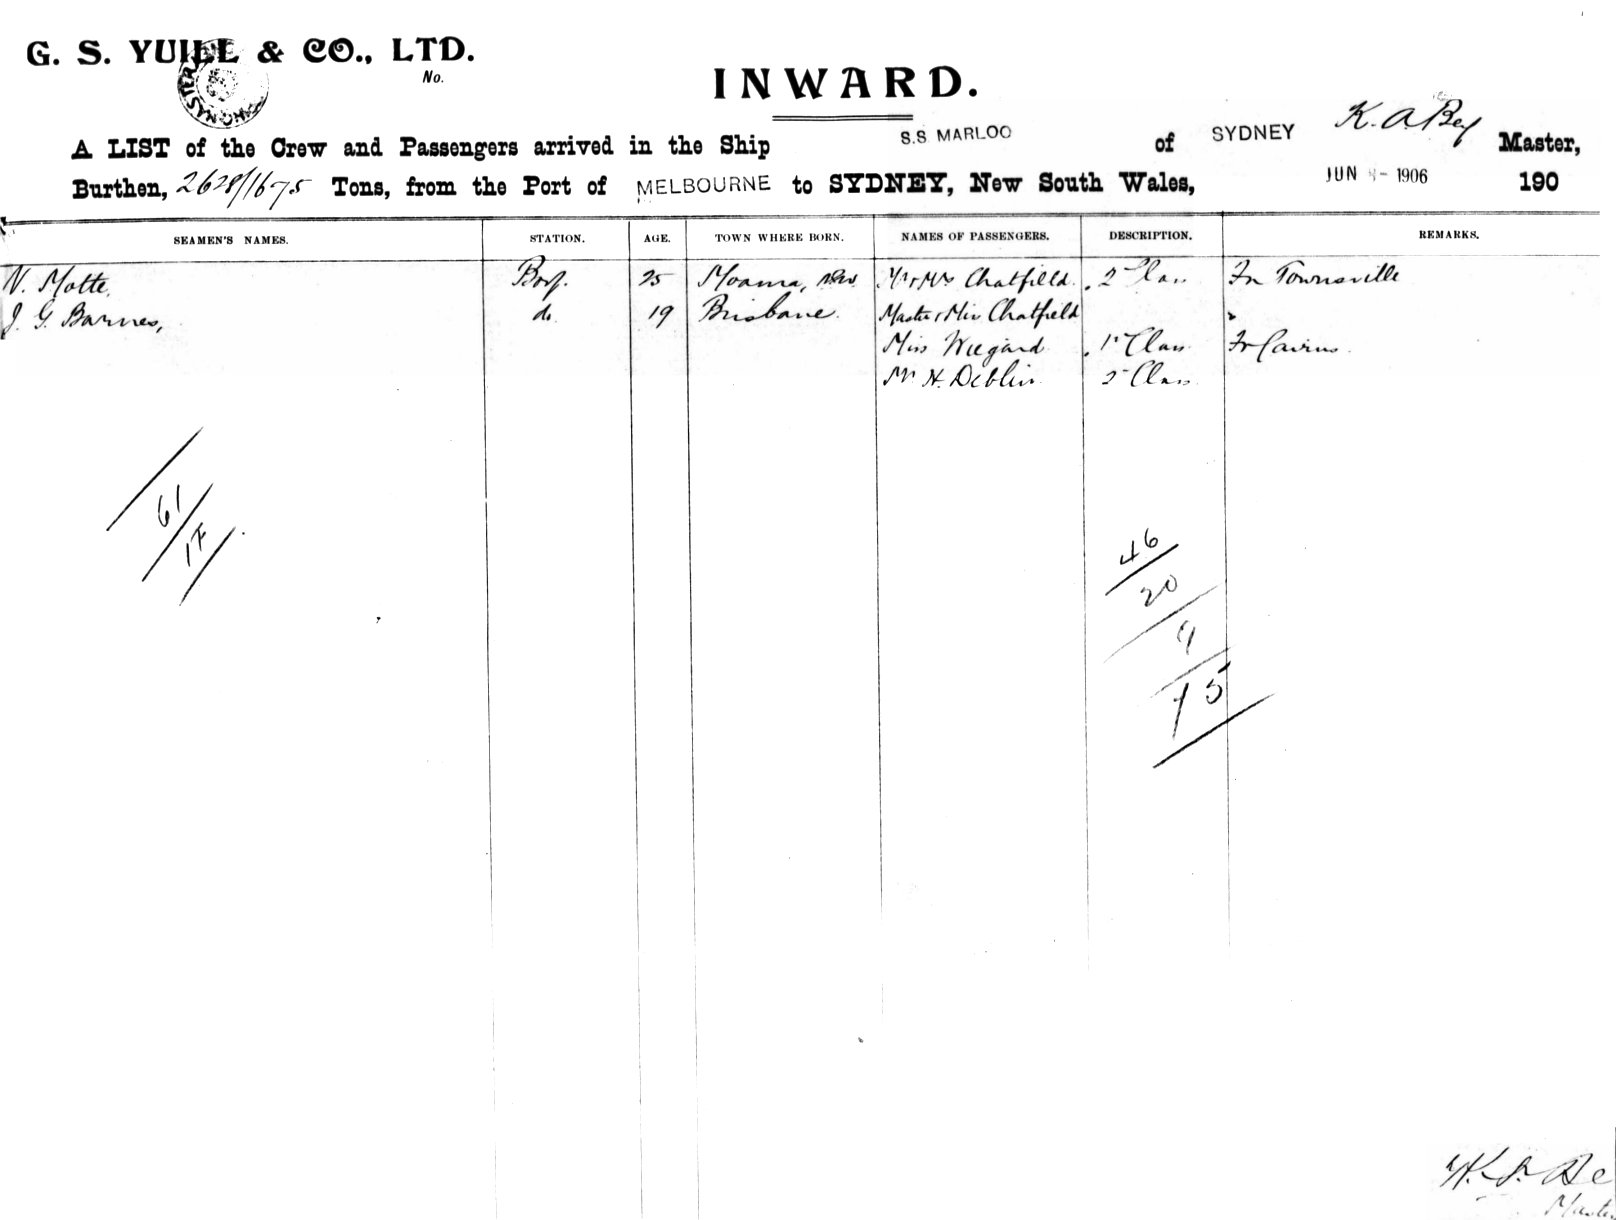 G. S. YUILL & CO., LTD.
No.
INWARD.
A LIST of the Crew and Passengers arrived in the Ship S.S. MARLOO of SYDNEY K. A. Master,
Burthen, 2628/1675 Tons, from the Port of MELBOURNE to SYDNEY, New South Wales, JUN - 1906 190
SEAMEN'S NAMES. STATION. AGE. TOWN WHERE BORN. NAMES OF PASSENGERS. DESCRIPTION. REMARKS.
N. Motte. 25 Moama, NSW Mr & Mrs Chatfield. 2 Class Fr Townsville
J. G. Barnes, do 19 Brisbane. Master & Miss Chatfield "
Miss Wiegard 1st Class Fr Cairns.
Mr H. Deblin. 2 Class
61
17
46
20
9
75
Master